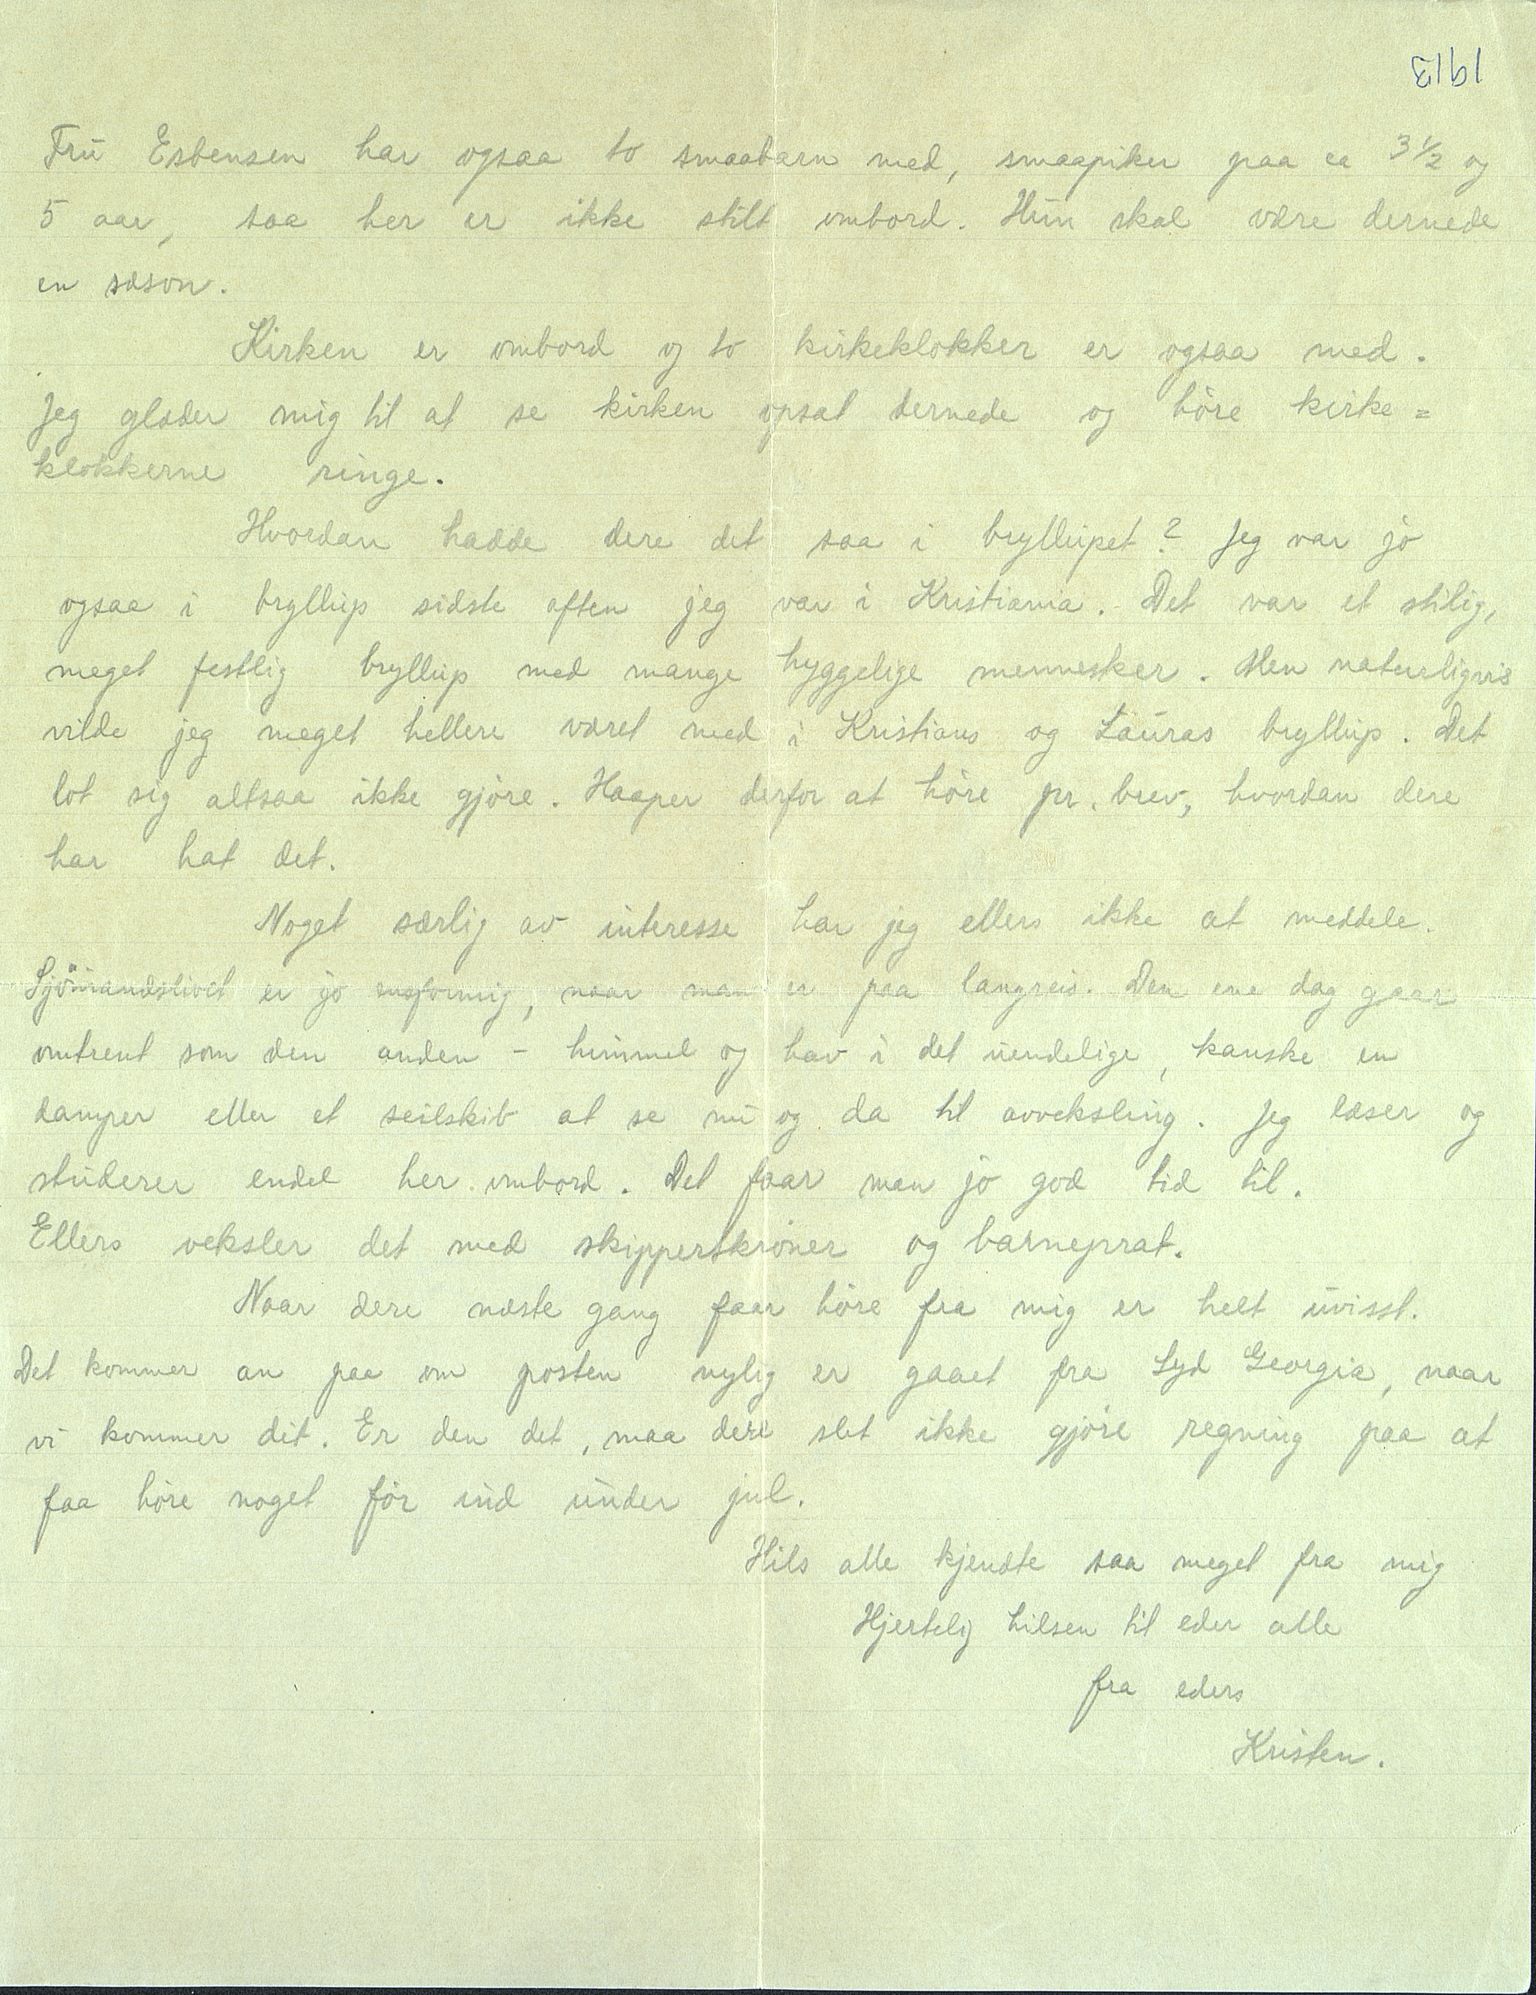 1913
Fru Esbensen har ogsaa to smaabarn med, smaapiker paa ca 3½ og
5 aar, saa her er ikke stilt ombord. Hun skal være dernede
en sæson.
Kirken er ombord og to kirkeklokker er ogsaa med.
Jeg glæder mig til at se kirken opsat dernede og höre kirke=
klokkerne ringe.
Hvordan hadde dere det saa i bryllupet? Jeg var jo
ogsaa i bryllup sidste aften jeg var i Kristiania. Det var et stilig,
meget festlig bryllup med mange hyggelige mennesker. Men naturligvis
vilde jeg meget hellere været med i Kristians og Lauras bryllup. Det
lot sig altsaa ikke gjöre. Haaper derfor at höre pr. brev, hvordan dere
har hat det.
Noget særlig av interesse har jeg ellers ikke at meddele.
Sjömandslivet er jo ensformig, naar man er paa langreis. Den ene dag gaar
omtrent som den anden - himmel og hav i det uendelige, kanske en
damper eller et seilskib at se nu og da til avveksling. Jeg læser og
studerer endel her ombord. Det faar man jo god tid til.
Ellers veksler det med skipperskröner og barneprat.
Naar dere næste gang faar höre fra mig er helt uvisst.
Det kommer an paa om posten nylig er gaaet fra Syd Georgia, naar
vi kommer dit. Er den det, maa dere slet ikke gjöre regning paa at
faa höre noget för ind under jul.
Hils alle kjendte saa meget fra mig
Hjertelig hilsen til eder alle
fra eders
Kristen.